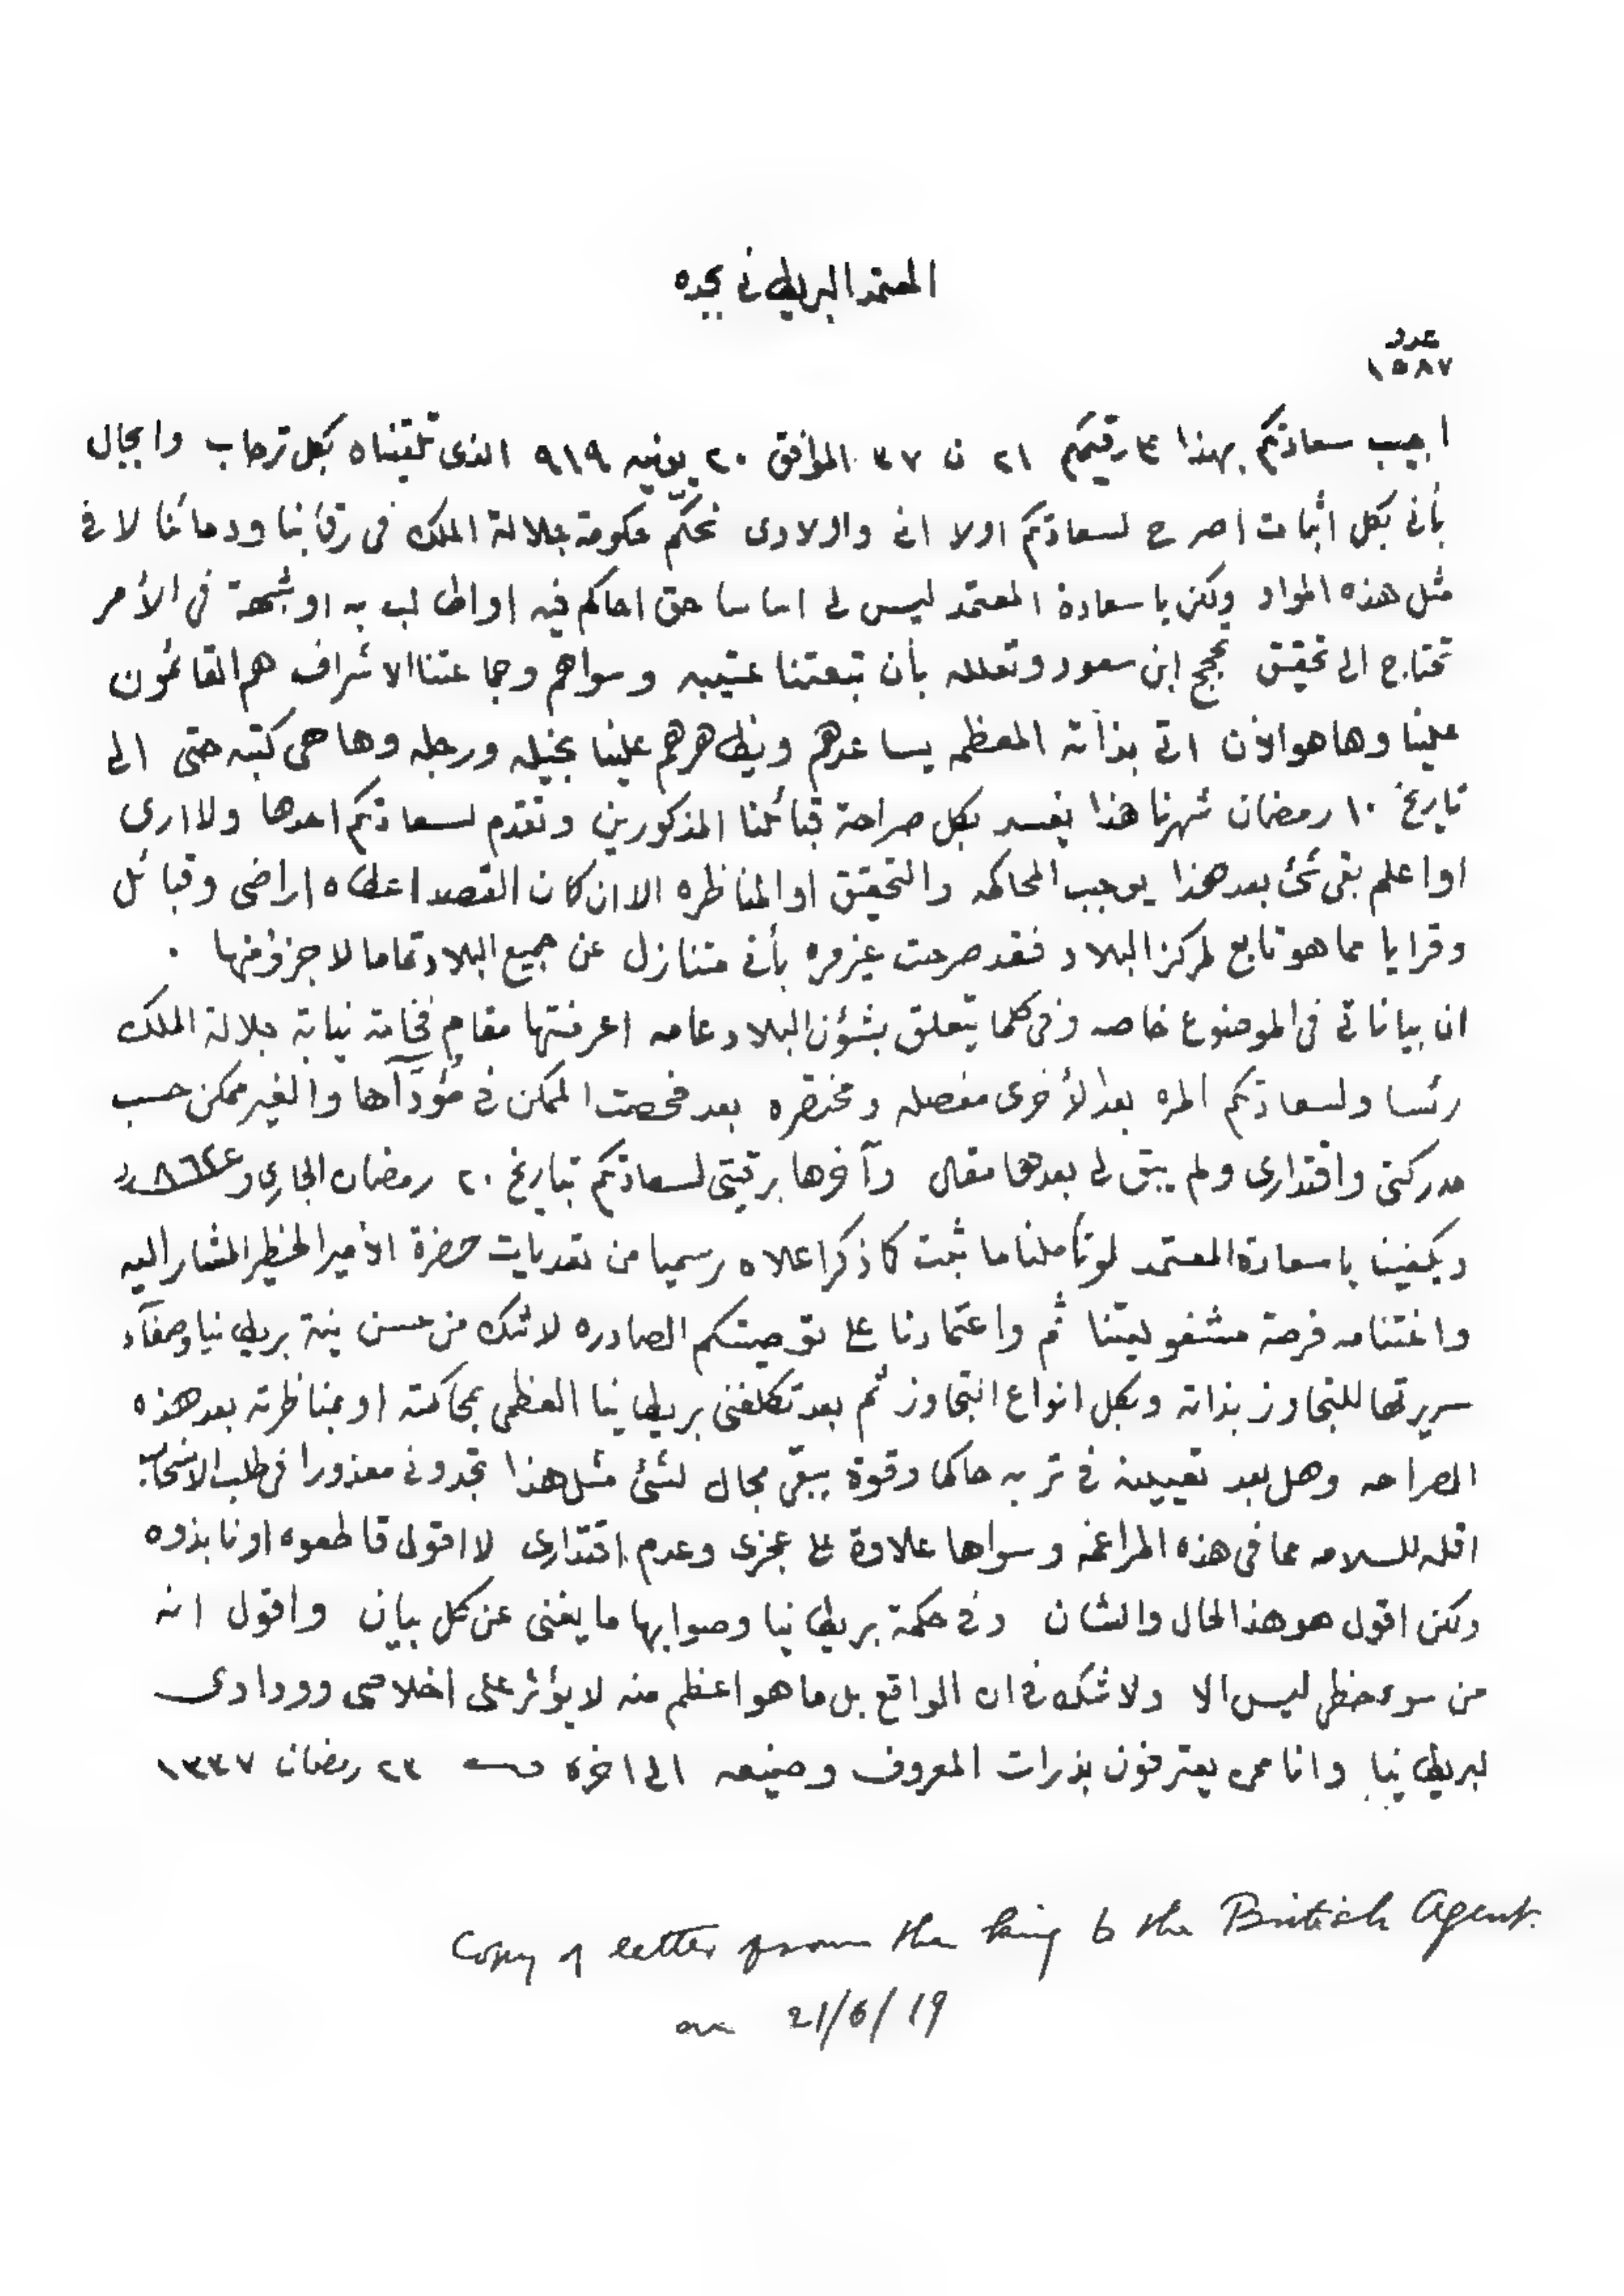 المعتمد البريطاني بجده
عدد
١٥٨٧
اجيب سعادتكم بهذا ع رقيمكم ٢١ ن ٣٧ الموافق ٢٠ يونيه ٩١٩ الذى تلقيناه بكل ترحاب وابجال
بأنى بكل اثبات اصرح لسعادتكم اولا انى واولادى نحكّم حكومة جلالة الملك فى رقابنا ودمائنا لا فى
مثل هذه المواد ولكن يا سعادة المعتمد ليس لى اساسا حق احاكم فيه او اطالب به او شبهة فى الأمر
تحتاج الى تحقيق تحجج ابن سعود وتعلله بأن تبعتنا عتيبه وسواهم وجماعتنا الاشراف هم القائمون
علينا وها هو الآن اتى بذاته المعظمه يساعدهم ويظاهرهم علينا بخيله ورجله وها هى كتبه حتى الى
تاريخ ١٠ رمضان شهرنا هذا يفسد بكل صراحة قبائلنا المذكورين ونقدم لسعادتكم احدها ولا ارى
او اعلم بقى شئ بعد هذا يوجب المحاكمه والتحقيق او المناظره الا ان كان القصد اعطاه اراضى وقبائل
وقرايا مما هو تابع لمركز البلاد فقد صرحت غير مره بأنى متنازل عن جميع البلاد تماما لا جزؤ منها .
ان بياناتى فى الموضوع خاصه وفى كلما يتعلق بشؤن البلاد عامه اعرضتها مقام فخامة نيابة جلالة الملك
رئسا ولسعادتكم المره بعد الأخرى مفصله ومختصره بعد فحصت الممكن فى مؤدآها والغير ممكن حسب
مدركتى واقتدارى ولم يبق لى بعدها مقال وآخرها برقيتى لسعادتكم بتاريخ ٢٠ رمضان الجارى و
ويكفينا يا سعادة المعتمد لو تأملنا ما ثبت كما ذكر اعلاه رسميا من تعديات حضرة الأمير الخطير المشار اليه
واغتنامه فرصة مشغوليتنا ثم واعتمادنا على توصيتكم الصادره لا شك من حسن نية بريطانيا وصفآء
سريرتها للتجاوز بذاته وبكل انواع التجاوز ثم بعد تكلفنى بريطانيا العظمى بمحاكمته او بمناظرته بعد هذه
الصراحه وهل بعد تعيينه فى تربه حاكما وقوة يبقى مجال لشئ مثل هذا تجدونى معذورا فى طلب الانسحاب
اقله للسلامه مما فى هذه المراغمه وسواها علاوة على عجزى وعدم اقتدارى لا اقول قاطعوه او نابذوه
ولكن اقول هو هذا الحال والشان وفى حكمة بريطانيا وصوابها ما يغنى عن كل بيان واقول انه
من سوء حظى ليس الا ولا شك فى ان الواقع بل ما هو اعظم منه لا يؤثر على اخلاصى وودادى
لبريطانيا وانا ممن يعترفون بذرات المعروف وصنيعه الى اخره ٢٣ رمضان ١٣٣٧
Copy of letter from the King to the British Agent.
on 21/6/19